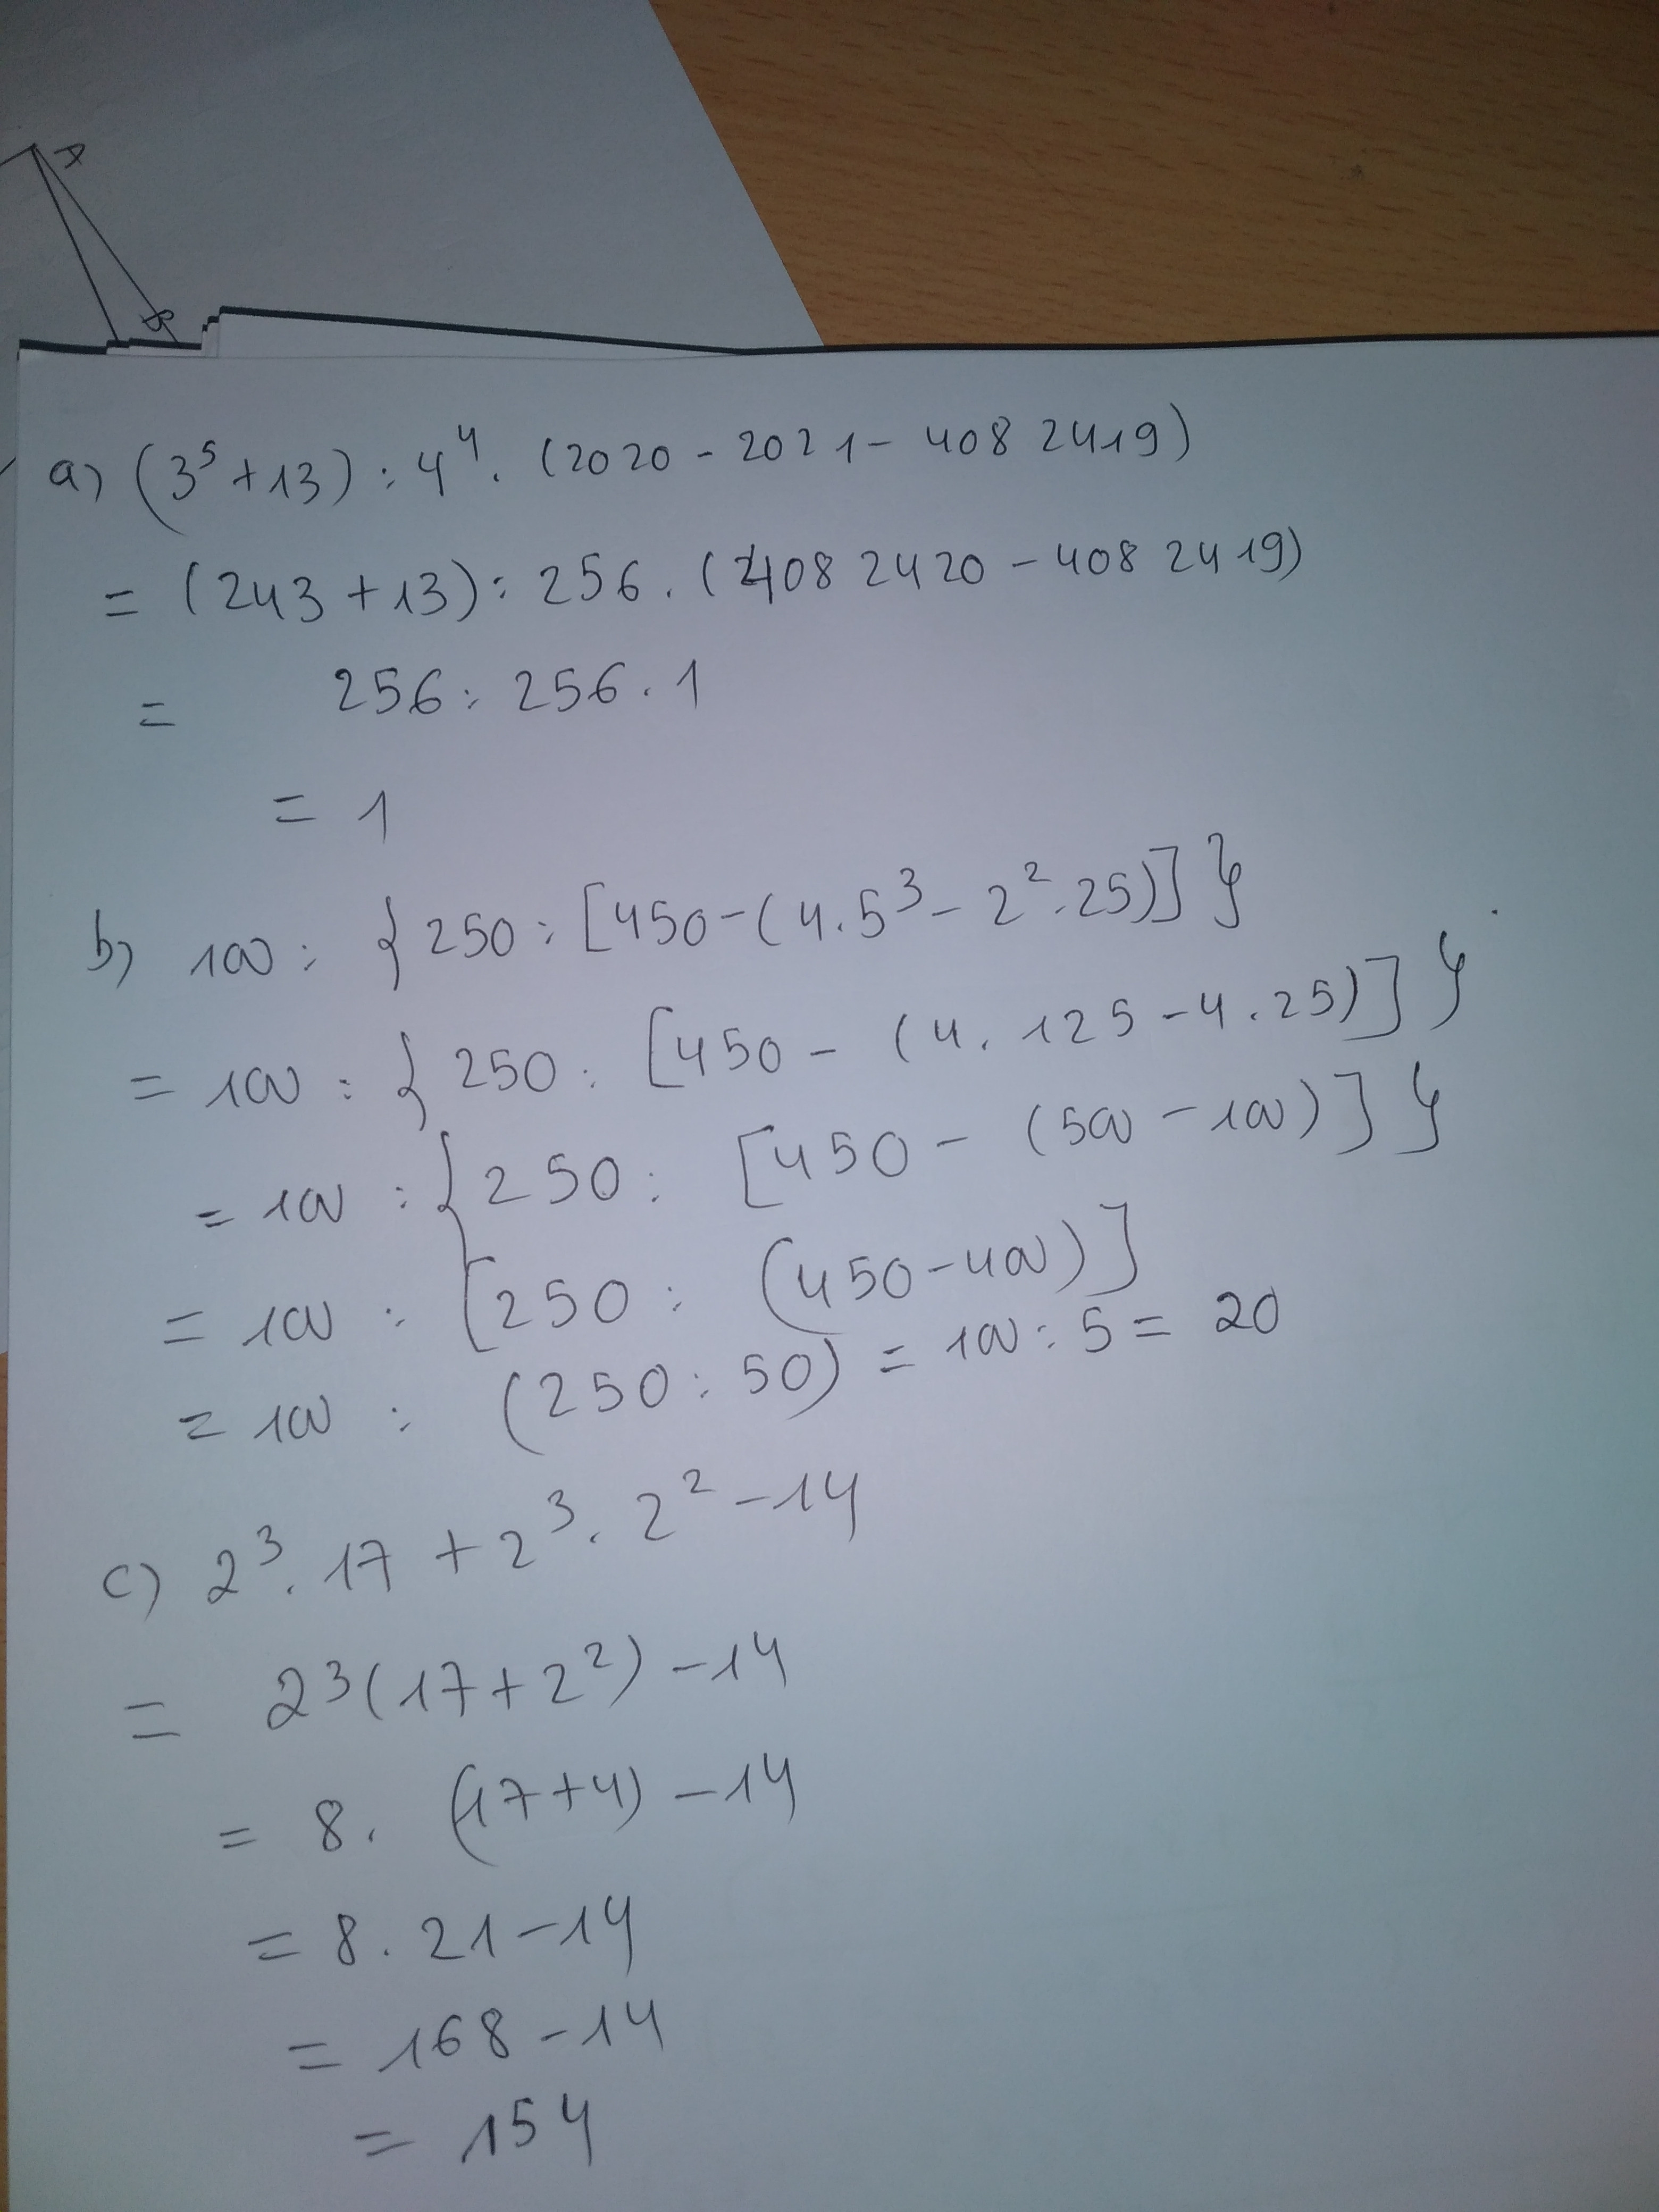 A
B
a) (3⁵ + 13) : 4⁴ . (2020 - 2021 - 408 2419)
= (243 + 13) : 256 . (408 2420 - 408 2419)
= 256 : 256 . 1
= 1
b) 100 : { 250 : [450 - (4 . 5³ - 2² . 25)] }
= 100 : { 250 : [450 - (4 . 125 - 4 . 25)] }
= 100 : { 250 : [450 - (500 - 100)] }
= 100 : [250 : (450 - 400)]
= 100 : (250 : 50) = 100 : 5 = 20
c) 2³ . 17 + 2³ . 2² - 14
= 2³ (17 + 2²) - 14
= 8 . (17 + 4) - 14
= 8 . 21 - 14
= 168 - 14
= 154